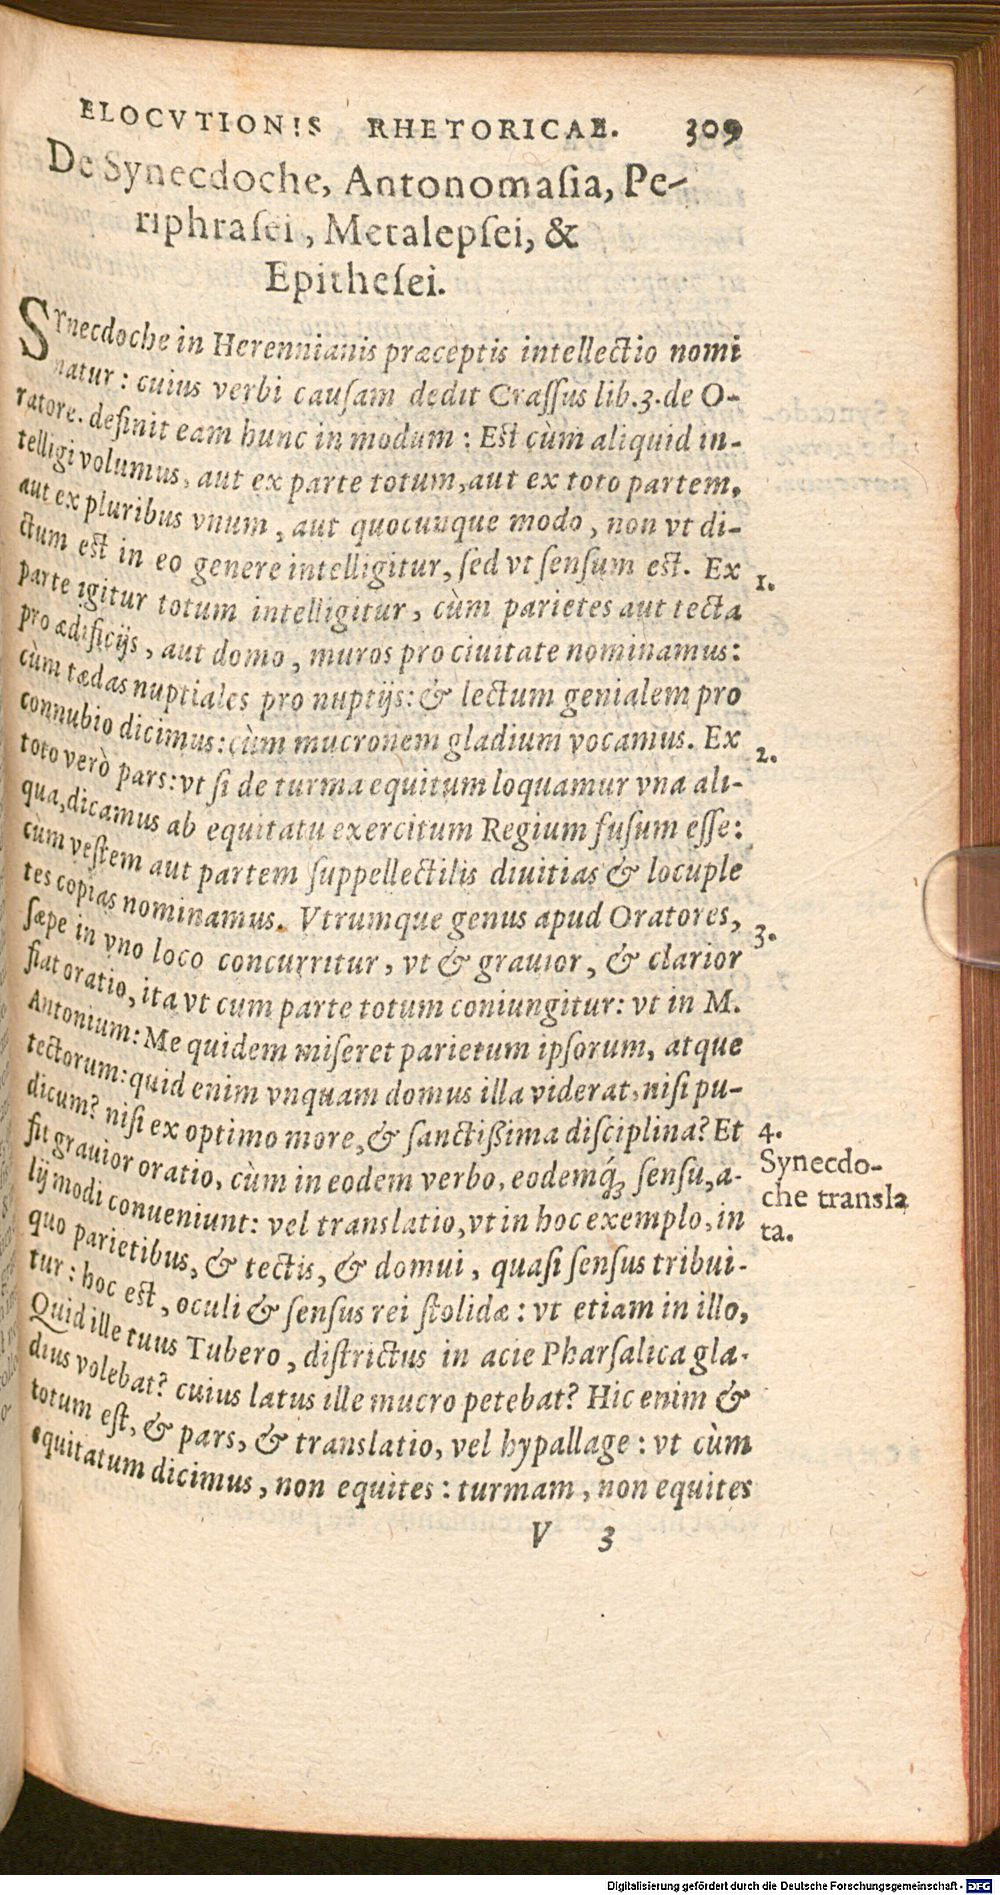 ELOCVTIONIS RHETORICAE. 309
De Synecdoche, Antonomaſia, Pe-
riphraſei, Metalepſei, &
Epitheſei.
SYnecdoche in Herennianis præceptis intellectio nomi
natur: cuius verbi cauſam dedit Craſſus lib.3.de O-
ratore. definit eam hunc in modum: Est cùm aliquid in-
telligi volumus, aut ex parte totum, aut ex toto partem,
aut ex pluribus vnum, aut quocunque modo, non vt di-
ctum est in eo genere intelligitur, ſed vt ſenſum est. Ex
1.
parte igitur totum intelligitur, cùm parietes aut tecta
pro ædificijs, aut domo, muros pro ciuitate nominamus:
cùm tædas nuptiales pro nuptijs: & lectum genialem pro
connubio dicimus: cùm mucronem gladium vocamus. Ex
2.
toto verò pars: vt ſi de turma equitum loquamur vna ali-
qua, dicamus ab equitatu exercitum Regium fuſum eſſe:
cum veſtem aut partem ſuppellectilis diuitias & locuple
tes copias nominamus. Vtrumque genus apud Oratores,
3.
ſæpe in vno loco concurritur, vt & grauior, & clarior
fiat oratio, ita vt cum parte totum coniungitur: vt in M.
Antonium: Me quidem miſeret parietum ipſorum, atque
tectorum: quid enim vnquam domus illa viderat, niſi pu-
dicum? niſi ex optimo more, & ſanctißima diſciplina? Et
4.
Synecdo-
che transla
ta.
fit grauior oratio, cùm in eodem verbo, eodemq́ꝫ ſenſu, a-
lij modi conueniunt: vel translatio, vt in hoc exemplo, in
quo parietibus, & tectis, & domui, quaſi ſenſus tribui-
tur: hoc est, oculi & ſenſus rei ſtolidæ: vt etiam in illo,
Quid ille tuus Tubero, diſtrictus in acie Pharſalica gla-
dius volebat? cuius latus ille mucro petebat? Hic enim &
totum eſt, & pars, & translatio, vel hypallage: vt cùm
equitatum dicimus, non equites: turmam, non equites
V 3
Digitalisierung gefördert durch die Deutsche Forschungsgemeinschaft - DFG